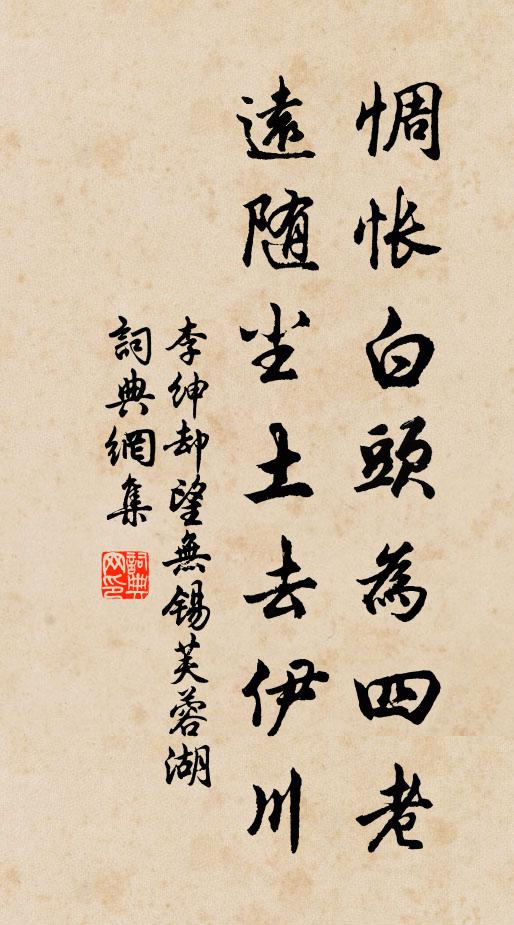 惆怅白頭為四老
遠随尘土去伊川
李紳却望無錫芙蓉湖
詞典網集
詞典網印